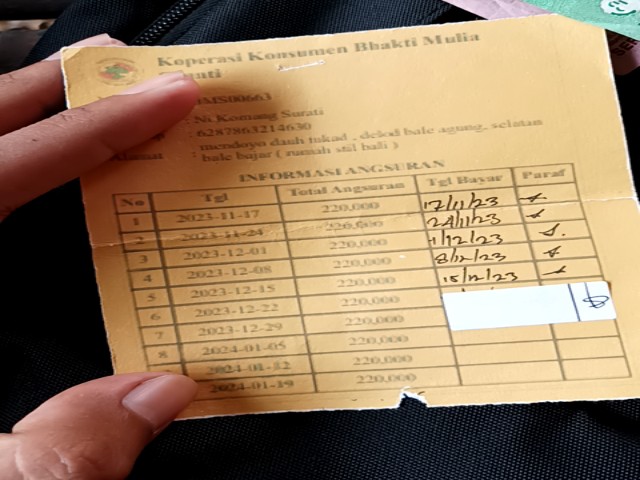 Koperasi Konsumen Bhakti Mulia
: Ni Komang Surati
: 6287863214630
: mendoyo dauh tukad , delod bale agung, selatan
bale bajar ( rumah stil bali )
INFORMASI ANGSURAN
No Tgl Total Angsuran Tgl Bayar Paraf
1 2023-11-17 220,000 17/11/23
2 2023-11-24 220,000 24/11/23
3 2023-12-01 220,000 1/12/23
4 2023-12-08 220,000 8/12/23
5 2023-12-15 220,000 15/12/23
6 2023-12-22 220,000
7 2023-12-29 220,000
8 2024-01-05 220,000
2024-01-12 220,000
2024-01-19 220,000